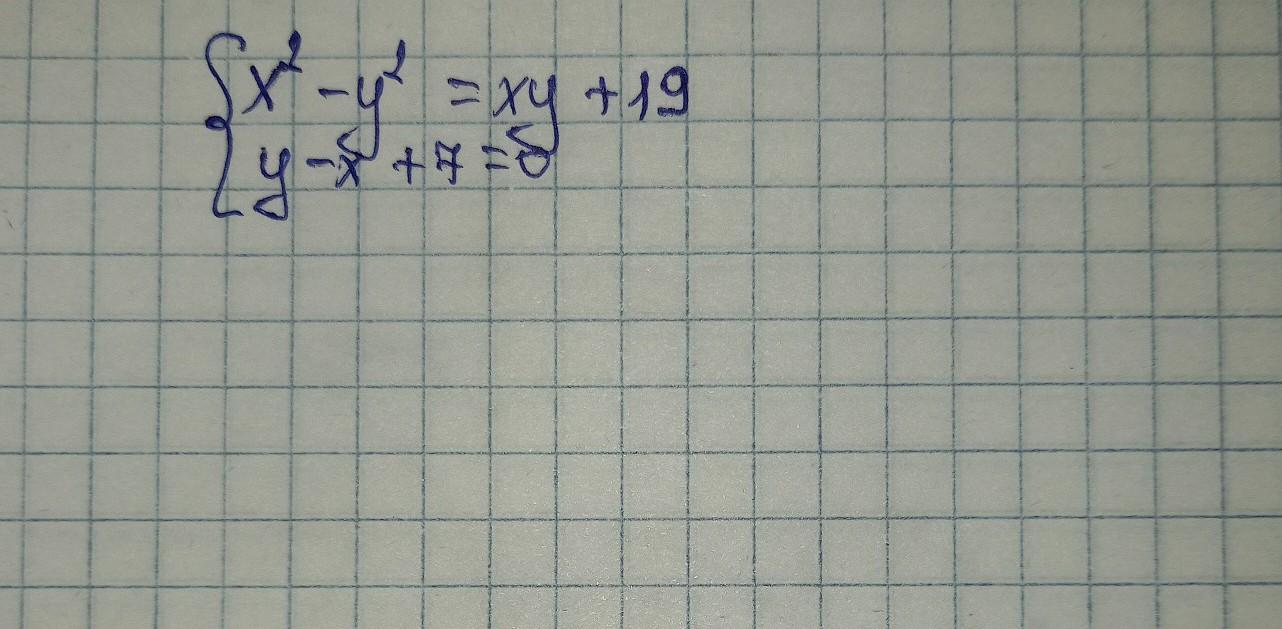 x² - y² = xy + 19
y - x + 7 = 0